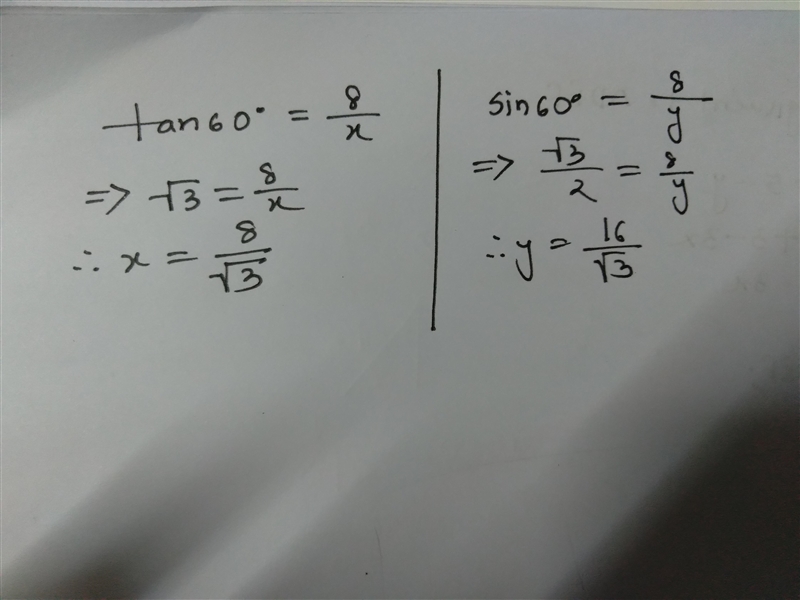 tan60° = 8/x
=> √3 = 8/x
∴ x = 8/√3
sin60° = 8/y
=> √3/2 = 8/y
∴ y = 16/√3